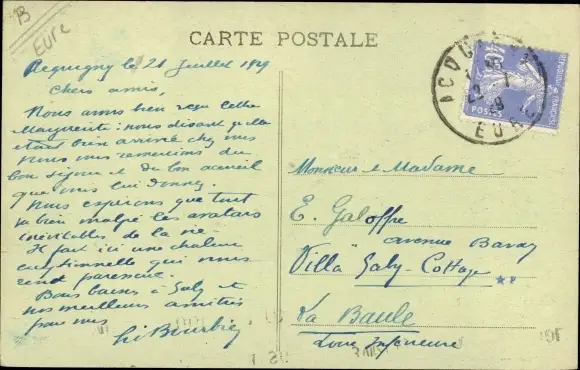 B
Eure
CARTE POSTALE
Acquigny le 21 Juillet 1929
Chers amis,
Nous avons bien reçu lettre
Marguerite nous disant qu'elle
était bien arrivée chez vous
Nous vous remercions du
bon séjour et du bon accueil
que vous lui donnez.
Nous espérons que tout
va bien malgré les avatars
inévitables de la vie.
Il fait ici une chaleur
exceptionnelle qui vous
rend paresseux.
Bons baisers à Gaby et
nos meilleurs amitiés
pour vous
ACQUIGNY
EURE
REPUBLIQUE FRANÇAISE
POSTES
Monsieur et Madame
E. Galoffre
avenue
Villa Gaby-Cottage
La Baule
Loire Inférieure